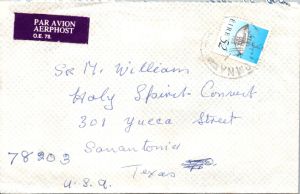 PAR AVION
AERPHOST
O.E. 78.
ÉIRE 52
Sr M. Williams
Holy Spirit Convent
301 Yucca Street
Sanantonio
Texas
78203
U.S.A.